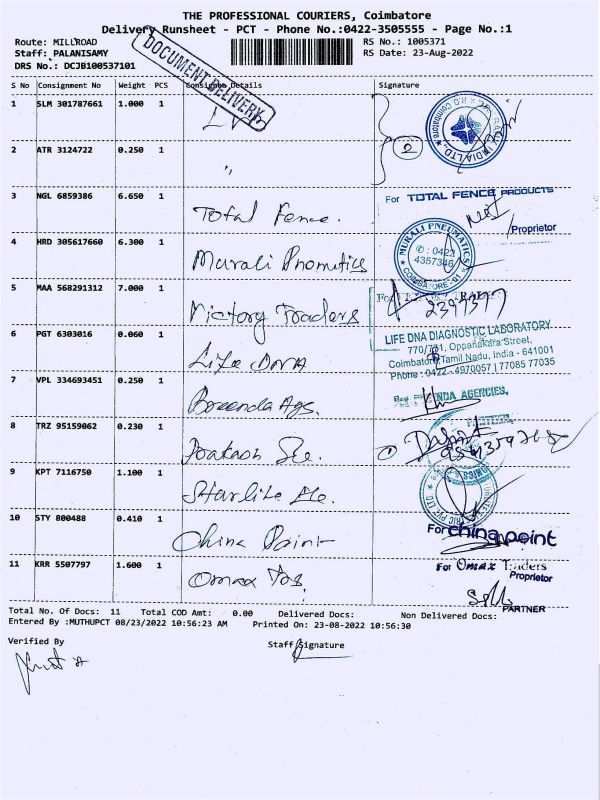 THE PROFESSIONAL COURIERS, Coimbatore
Delivery Runsheet - PCT - Phone No.:0422-3505555 - Page No.:1
Route: MILLROAD
RS No.: 1005371
Staff: PALANISAMY
RS Date: 23-Aug-2022
DRS No.: DCJB100537101
DOCUMENT DELIVERY
S No Consignment No Weight PCS Consignee Details Signature
1 SLM 301787661 1.000 1
2 ATR 3124722 0.250 1 "
INDIA LTD.
3 NGL 6859386 6.650 1 Total Fence.
For TOTAL FENCE PRODUCTS
Proprietor
4 HRD 305617660 6.300 1 Murali Pnomatics
MURALI PNEUMATICS
✆ : 0422
4357346
COIMBATORE
5 MAA 568291312 7.000 1 Victory Traders
2397377
6 PGT 6303016 0.060 1 Life DNA
LIFE DNA DIAGNOSTIC LABORATORY
770/731, Oppanakara Street,
Coimbatore, Tamil Nadu, India - 641001
Phone : 0422-4970057 | 77085 77035
7 VPL 334693451 0.250 1 Breenda Ags.
AGENCIES.
8 TRZ 95159062 0.230 1
9 KPT 7116750 1.100 1 Starlite Ele.
10 STY 800488 0.410 1 China Point
For china point
11 KRR 5507797 1.600 1 Omax Tds.
For Omax Traders
Proprietor
PARTNER
Total No. Of Docs: 11 Total COD Amt: 0.00 Delivered Docs: Non Delivered Docs:
Entered By :MUTHUPCT 08/23/2022 10:56:23 AM Printed On: 23-08-2022 10:56:30
Verified By
Staff Signature